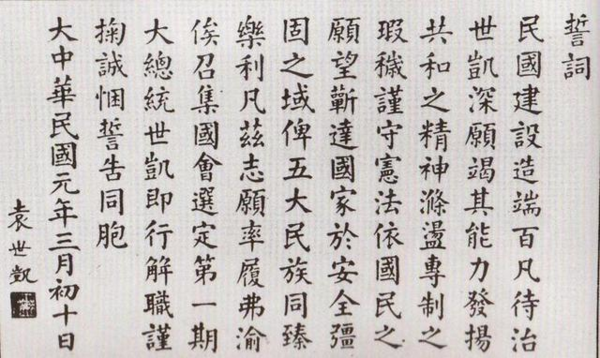 誓詞
民國建設造端百凡待治
世凱深願竭其能力發揚
共和之精神滌盪專制之
瑕穢謹守憲法依國民之
願望蘄達國家於安全彊
固之域俾五大民族同臻
樂利凡茲志願率履弗渝
俟召集國會選定第一期
大總統世凱即行解職謹
掬誠悃誓告同胞
大中華民國元年三月初十日
袁世凱